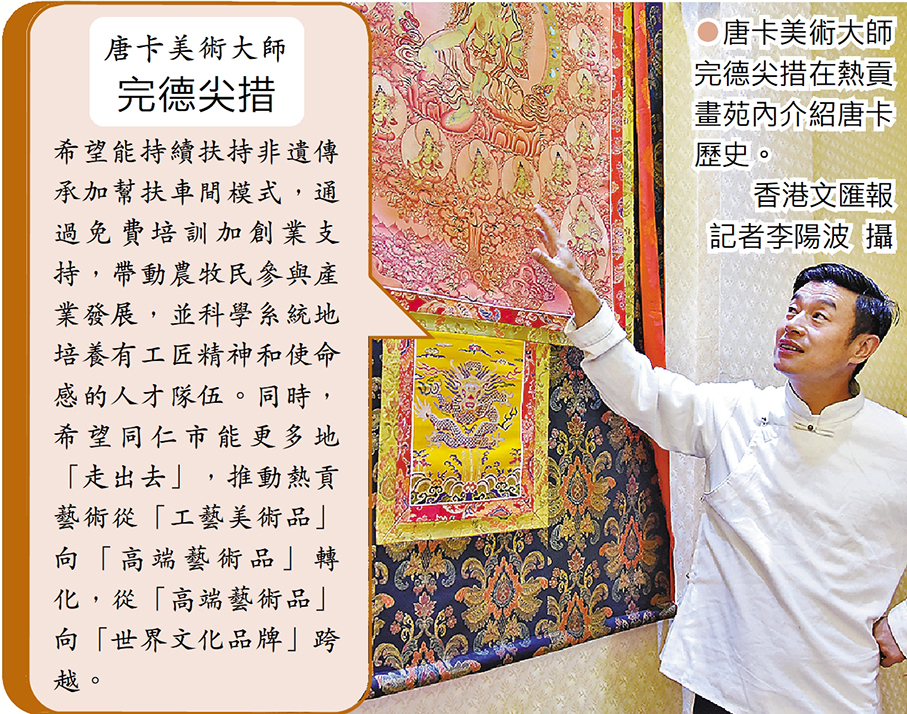 唐卡美術大師
完德尖措
希望能持續扶持非遺傳
承加幫扶車間模式，通
過免費培訓加創業支
持，帶動農牧民參與產
業發展，並科學系統地
培養有工匠精神和使命
感的人才隊伍。同時，
希望同仁市能更多地
「走出去」，推動熱貢
藝術從「工藝美術品」
向「高端藝術品」轉
化，從「高端藝術品」
向「世界文化品牌」跨
越。
●唐卡美術大師
完德尖措在熱貢
畫苑內介紹唐卡
歷史。
香港文匯報
記者李陽波 攝